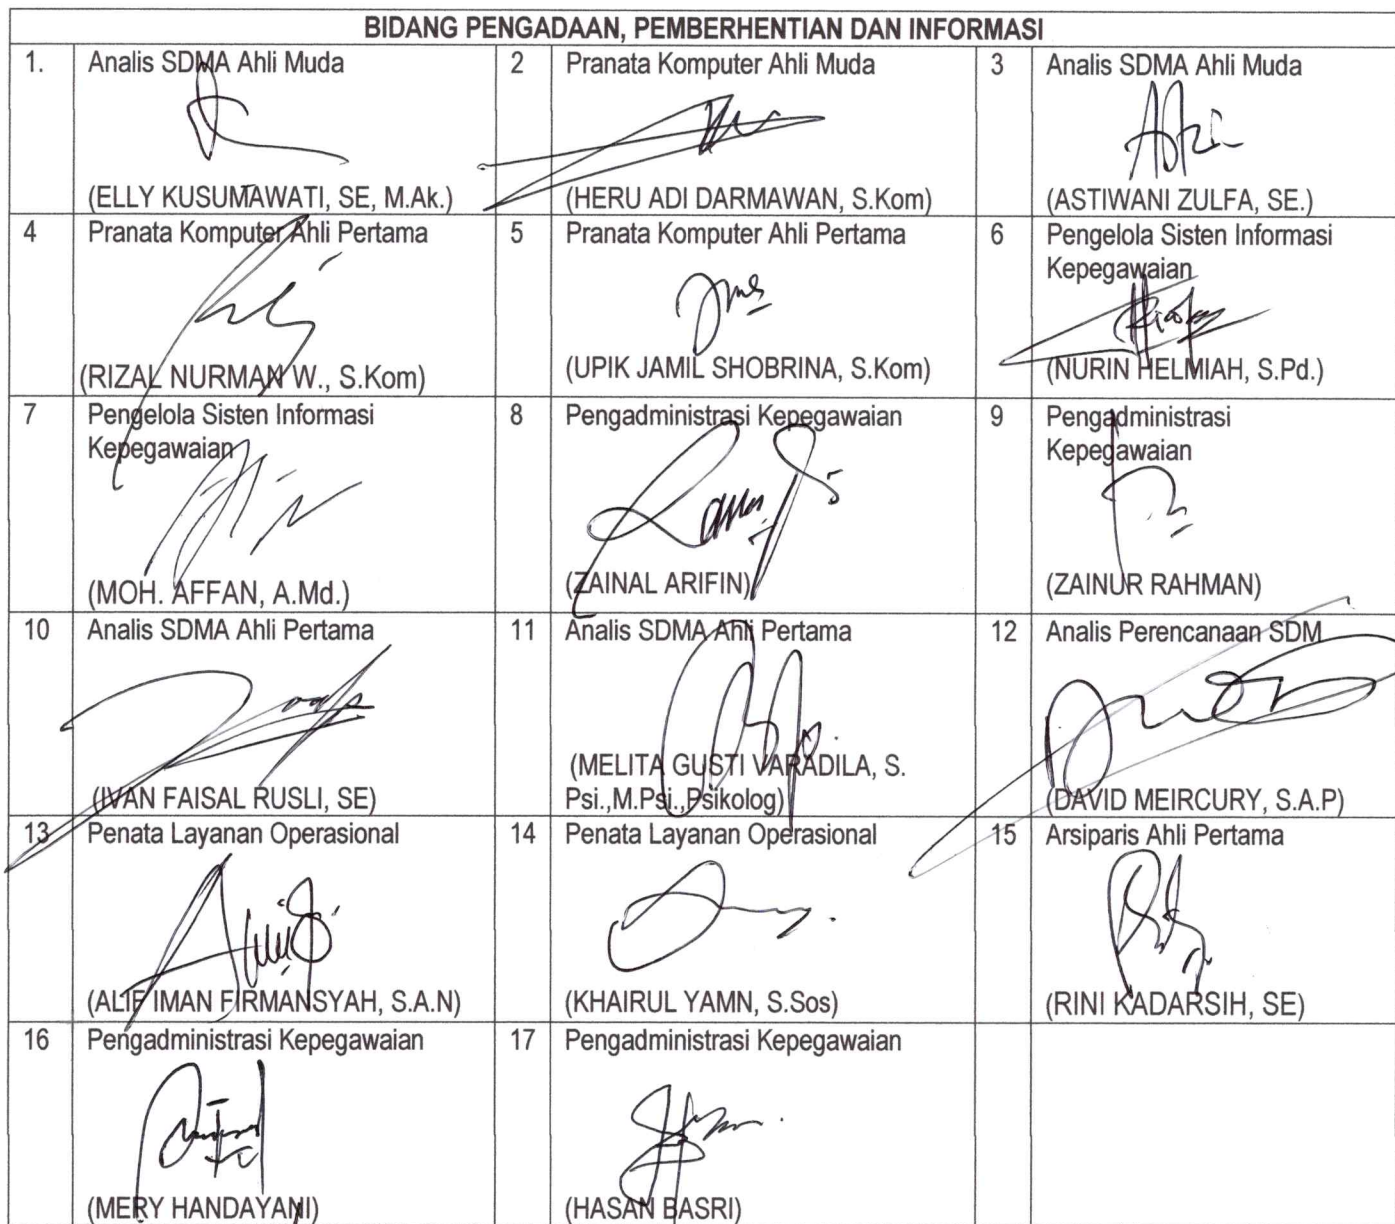 BIDANG PENGADAAN, PEMBERHENTIAN DAN INFORMASI
1. Analis SDMA Ahli Muda
(ELLY KUSUMAWATI, SE, M.Ak.)
2 Pranata Komputer Ahli Muda
(HERU ADI DARMAWAN, S.Kom)
3 Analis SDMA Ahli Muda
(ASTIWANI ZULFA, SE.)
4 Pranata Komputer Ahli Pertama
(RIZAL NURMAN W., S.Kom)
5 Pranata Komputer Ahli Pertama
(UPIK JAMIL SHOBRINA, S.Kom)
6 Pengelola Sisten Informasi
Kepegawaian
(NURIN HELMIAH, S.Pd.)
7 Pengelola Sisten Informasi
Kepegawaian
(MOH. AFFAN, A.Md.)
8 Pengadministrasi Kepegawaian
(ZAINAL ARIFIN)
9 Pengadministrasi
Kepegawaian
(ZAINUR RAHMAN)
10 Analis SDMA Ahli Pertama
(IVAN FAISAL RUSLI, SE)
11 Analis SDMA Ahli Pertama
(MELITA GUSTI VARADILA, S.
Psi.,M.Psi.,Psikolog)
12 Analis Perencanaan SDM
(DAVID MEIRCURY, S.A.P)
13 Penata Layanan Operasional
(ALIF IMAN FIRMANSYAH, S.A.N)
14 Penata Layanan Operasional
(KHAIRUL YAMN, S.Sos)
15 Arsiparis Ahli Pertama
(RINI KADARSIH, SE)
16 Pengadministrasi Kepegawaian
(MERY HANDAYANI)
17 Pengadministrasi Kepegawaian
(HASAN BASRI)